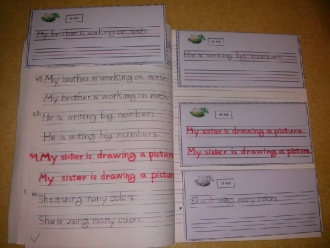 My brother is working on math.
My brother is working on math.
My brother is working on math.
He is writing by number.
He is writing by nombers.
My sister is drawing a picture
My sister is drawing a picture
She is using many colors.
She is using many colors.
He is writing by numbers.
My sister is drawing a picture.
My sister is drawing a picture.
She is using many